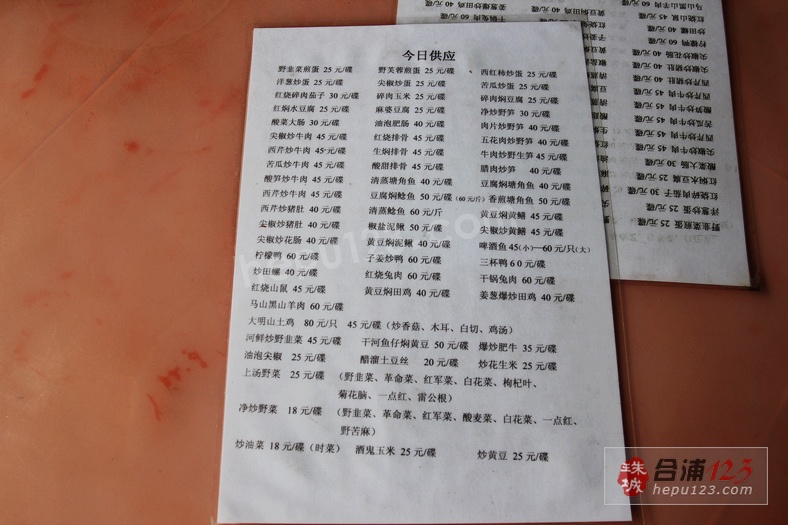 今日供应
野韭菜煎蛋 25 元/碟 野芙蓉煎蛋 25 元/碟 西红柿炒蛋 25 元/碟
洋葱炒蛋 25 元/碟 尖椒炒蛋 25 元/碟 苦瓜炒蛋 25 元/碟
红烧碎肉茄子 30 元/碟 碎肉玉米 25 元/碟 碎肉焖豆腐 25 元/碟
红焖水豆腐 25 元/碟 麻婆豆腐 25 元/碟 净炒野笋 30 元/碟
酸菜大肠 30 元/碟 油泡肥肠 40 元/碟 肉片炒野笋 40 元/碟
尖椒炒牛肉 45 元/碟 红烧排骨 45 元/碟 五花肉炒野笋 40 元/碟
西芹炒牛肉 45 元/碟 生焖排骨 45 元/碟 牛肉炒野生笋 45 元/碟
苦瓜炒牛肉 45 元/碟 酸甜排骨 45 元/碟 腊肉炒笋 40 元/碟
酸笋炒牛肉 45 元/碟 清蒸塘角鱼 40 元/碟 豆腐焖塘角鱼 40 元/碟
西芹炒牛肉 45 元/碟 豆腐焖鲶鱼 50 元/碟(60 元/斤) 香煎塘角鱼 50 元/碟
西芹炒猪肚 40 元/碟 清蒸鲶鱼 60 元/斤 黄豆焖黄鳝 45 元/碟
尖椒炒猪肚 40 元/碟 椒盐泥鳅 50 元/碟 尖椒炒黄鳝 45 元/碟
尖椒炒花肠 40 元/碟 黄豆焖泥鳅 40 元/碟 啤酒鱼 45(小)—60 元/只(大)
柠檬鸭 60 元/碟 子姜炒鸭 60 元/碟 三杯鸭 60 元/碟
炒田螺 40 元/碟 红烧兔肉 60 元/碟 干锅兔肉 60 元/碟
红烧山鼠 45 元/碟 黄豆焖田鸡 40 元/碟 姜葱爆炒田鸡 40 元/碟
马山黑山羊肉 60 元/碟
大明山土鸡 80 元/只 45 元/碟(炒香菇、木耳、白切、鸡汤)
河鲜炒野韭菜 45 元/碟 干河鱼仔焖黄豆 50 元/碟 爆炒肥牛 35 元/碟
油泡尖椒 25 元/碟 醋溜土豆丝 20 元/碟 炒花生米 25 元/碟
上汤野菜 25 元/碟 (野韭菜、革命菜、红军菜、白花菜、枸杞叶、
菊花脑、一点红、雷公根)
净炒野菜 18 元/碟 (野韭菜、革命菜、红军菜、酸麦菜、白花菜、一点红、
野苦麻)
炒油菜 18 元/碟(时菜) 酒鬼玉米 25 元/碟 炒黄豆 25 元/碟
珠城 合浦123
hepu123.com